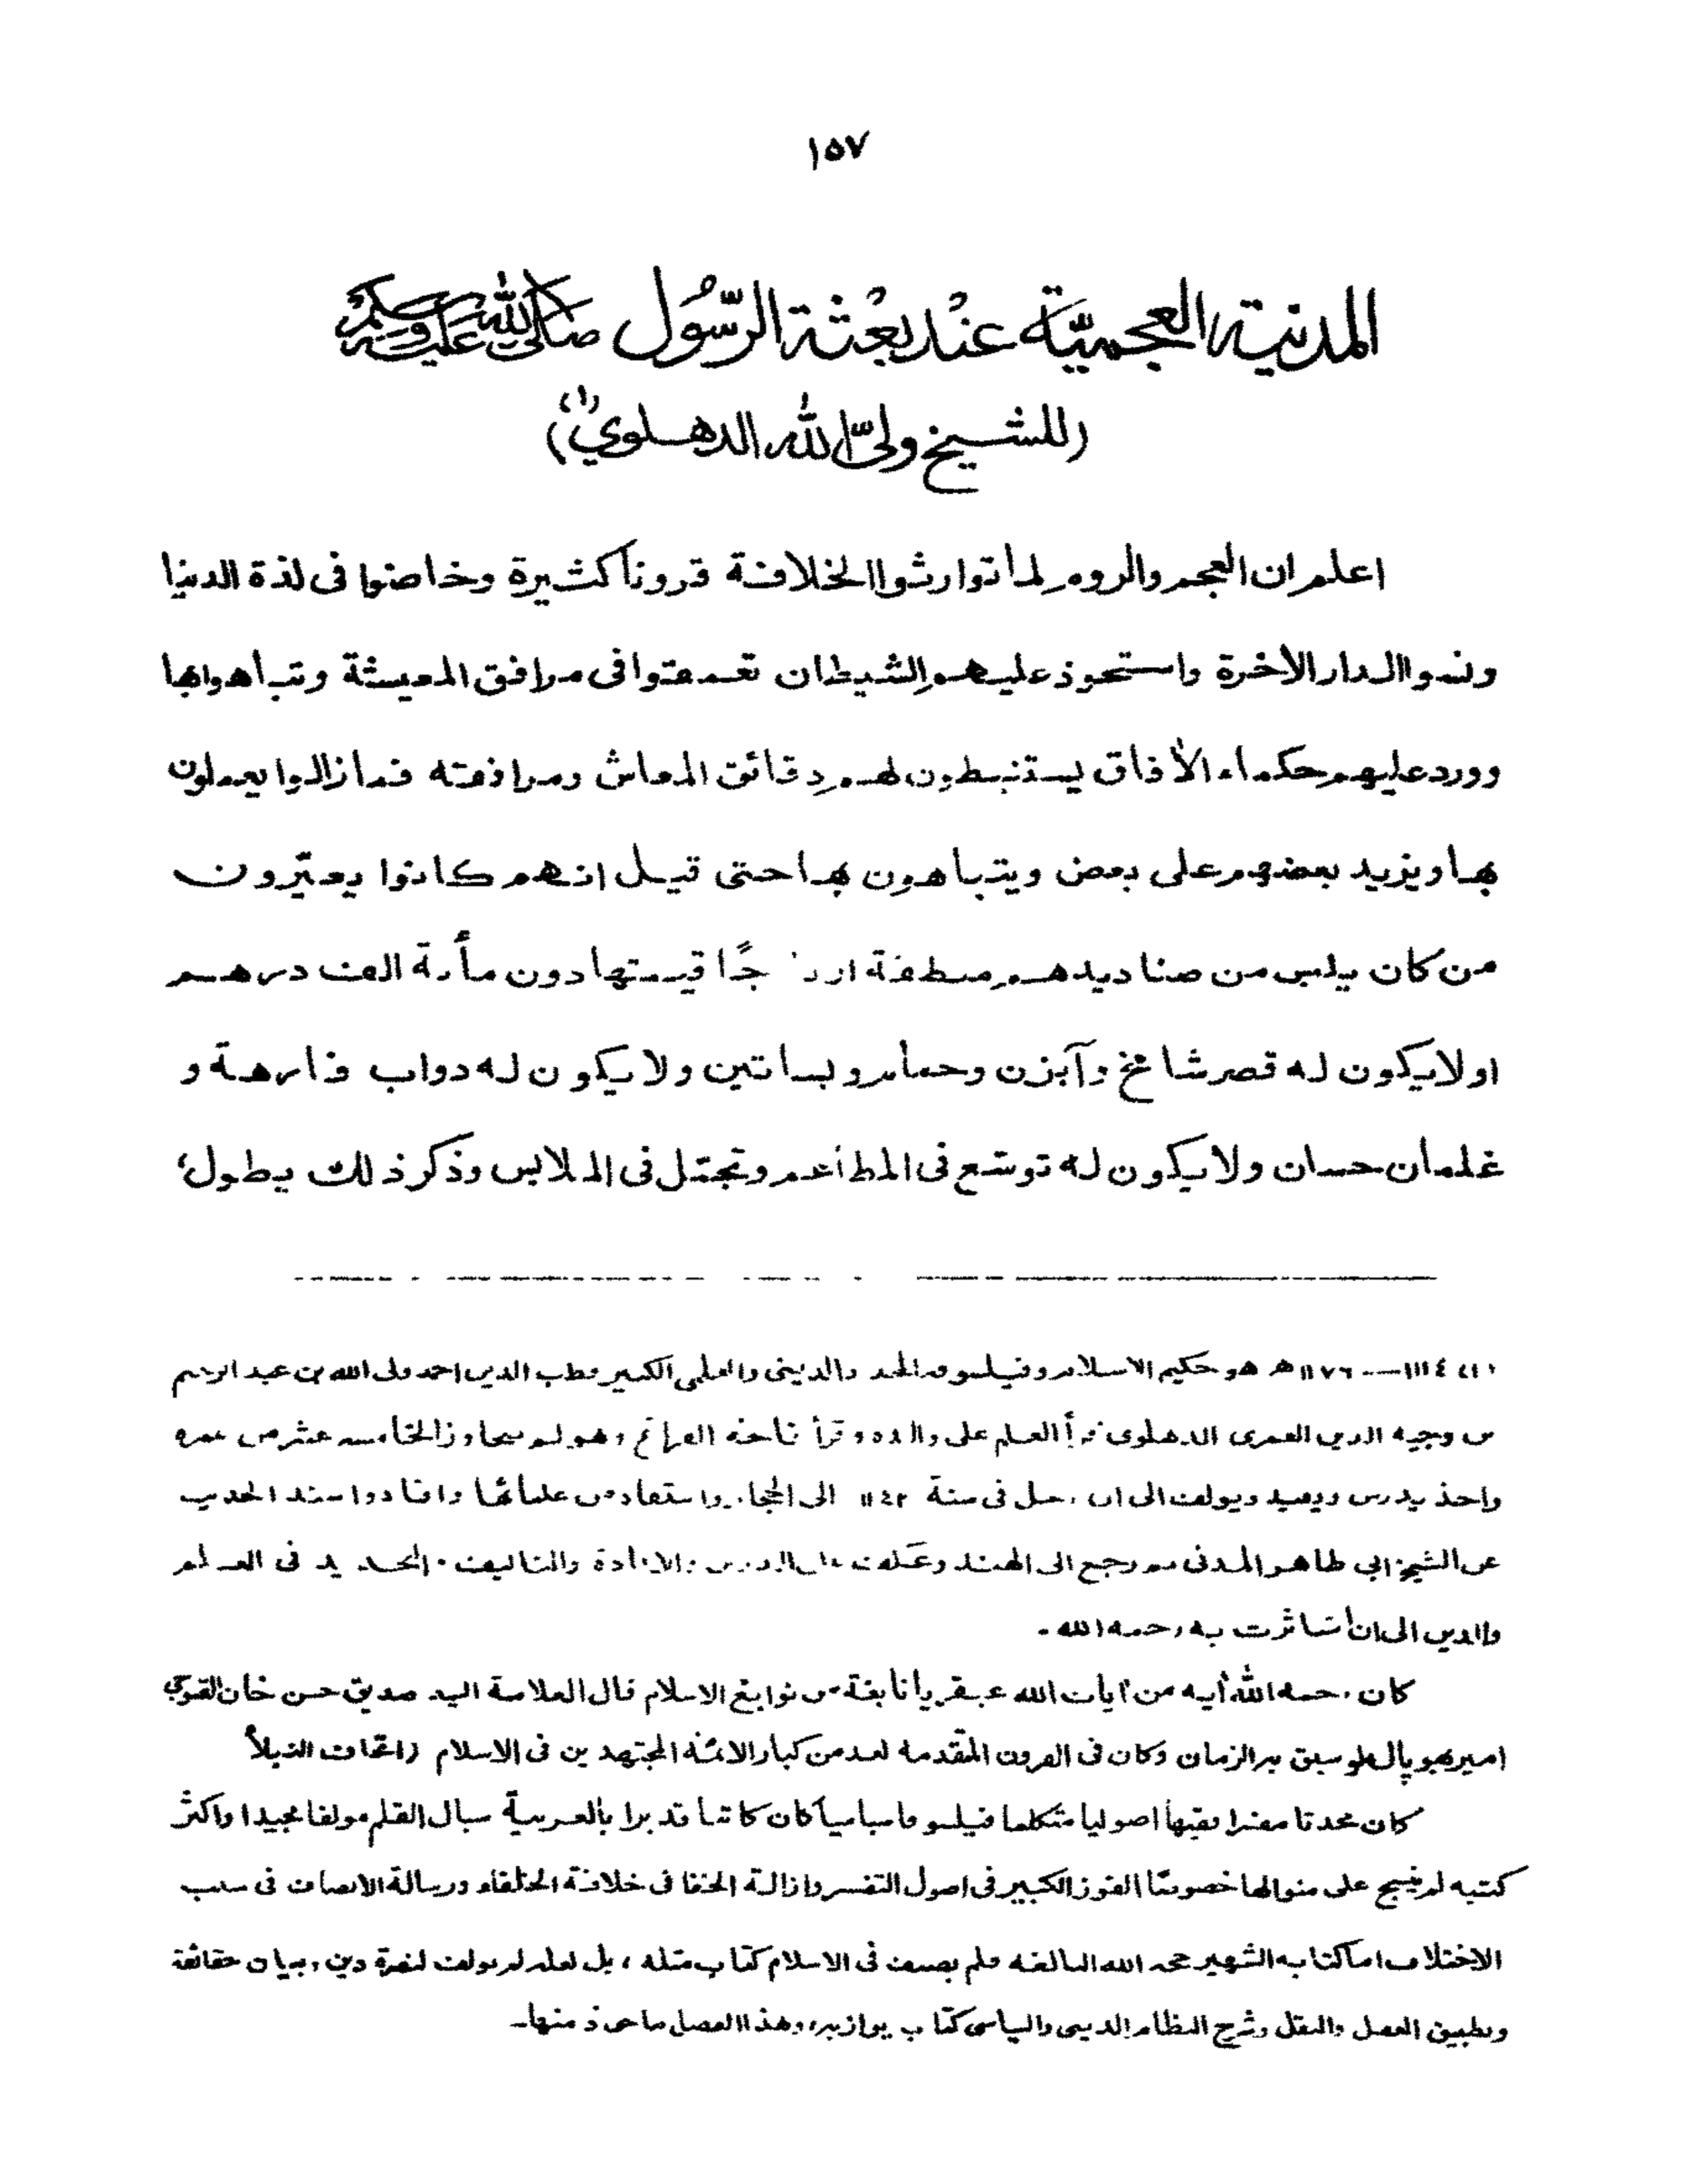 ١٥٧
المدنية العجميّة عنْد بعْثة الرّسُول صلى الله عليه وسلم
(للشيخ وليّ الله الدهلويّ) (١)
اعلم ان العجم والروم لما توارثوا الخلافة قرونا كثيرة وخاضوا فى لذة الدنيا
ونسوا الدار الأخرة واستحوذ عليهم الشيطان تعمقوا فى مرافق المعيشة وتباهوا بها
وورد عليهم حكماء الأفاق يستنبطون لهم دقائق المعاش ومرافقه فما زالوا يعملون
بها ويزيد بعضهم على بعض ويتباهون بها حتى قيل انهم كانوا يعيّرون
من كان يلبس من صناديدهم منطقة او جًا قيمتها دون مأة الف درهم
او لا يكون له قصر شامخ وآبزن وحمام وبساتين ولا يكون له دواب فارهة و
غلمان حسان ولا يكون له توسّع فى المطاعم وتجمّل فى الملابس وذكر ذلك يطول؛
(١) ١١١٤ — ١١٧٦ هـ هو حكيم الاسلام وفيلسوفه والدينى والعلمى الكبير قطب الدين احمد ولى الله بن عبد الرحيم
بن وجيه الدين العمرى الدهلوى قرأ العلم على والده وقرأ فاتحة الفراغ وهو لم يتجاوز الخامسه عشر من عمره
واخذ يدرس ويفيد ويولف الى ان رحل فى سنة ١١٤٣ الى الحجاز واستفاد من علمائها وافادوا سند الحديث
عن الشيخ ابي طاهر المدنى ثم رجع الى الهند وعكف على الدرس والافادة والتاليف فى العلم
والدين الى ان به رحمه الله -
كان رحمه الله أيه من آيات الله عبقريا نابغة من نوابغ الاسلام قال العلامة السيد صديق حسن خان القنوجي
امير بهوپال لو سبق به الزمان وكان فى القرون المتقدمة لعد من كبار الائمة المجتهدين فى الاسلام (اتحاف النبلأ
كان محدثا مفسرا فقيها اصوليا متكلما فيلسوفا سياسيا كان كاتبا قديرا بالعربية سيال القلم مولفا مجيدا واكثر
كتبه لم ينسج على منوالها خصوصًا الفوز الكبير فى اصول التفسير وازالة الخفا فى خلافة الخلفاء ورسالة الانصاف فى سبب
الاختلاف اما كتابه الشهير حجة الله البالغه فلم يصنف فى الاسلام كتاب مثله ، بل لعله لم يولف لنصرة دين وبيان حقائقه
وتطبيق العقل والنقل وشرح النظام الديني والسياسى كتاب يوازيه، وهذا الفصل ماخوذ منها-